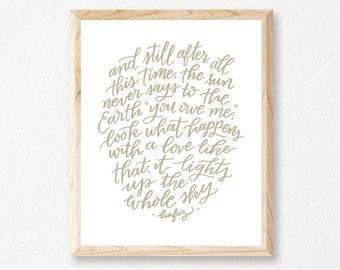 and still after all
this time, the sun
never says to the
Earth "you owe me;"
look what happens
with a love like
that, it lights
up the
whole sky
- hafiz -